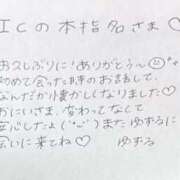 ICの本指名さま♡
お久しぶりに"ありがとう〜
初めて会った時のお話して、
なんだか懐かしくなりました♡
おにいさま、変わってなくて
安心したよ(´-`)また ゆずるに
会いに来てね♡ ゆずる